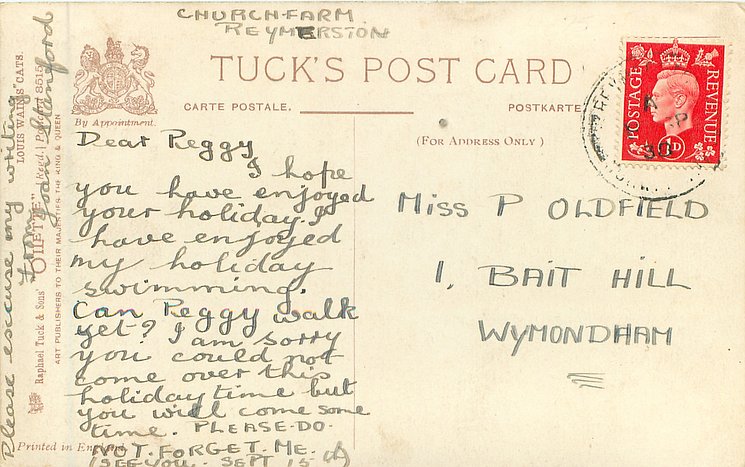 CHURCH-FARM
REYMERSTON
TUCK'S POST CARD
CARTE POSTALE.
POSTKARTE
By Appointment.
(FOR ADDRESS ONLY)
POSTAGE
REVENUE
1D
Dear Peggy
I hope
you have enjoyed
your holiday. I
have enjoyed
my holiday
swimming.
Can Peggy walk
yet? I am sorry
you could not
come over this
holiday time but
you will come some
time. PLEASE-DO-
NOT-FORGET-ME.
(SEE-YOU. SEPT 15
Miss P OLDFIELD
1, BAIT HILL
WYMONDHAM
Please excuse my writing
from Joan Stanford
LOUIS WAIN'S "CATS.
Raphael Tuck & Sons' "OILETTE" Regd. Postcard 8515
ART PUBLISHERS TO THEIR MAJESTIES THE KING & QUEEN
Printed in England